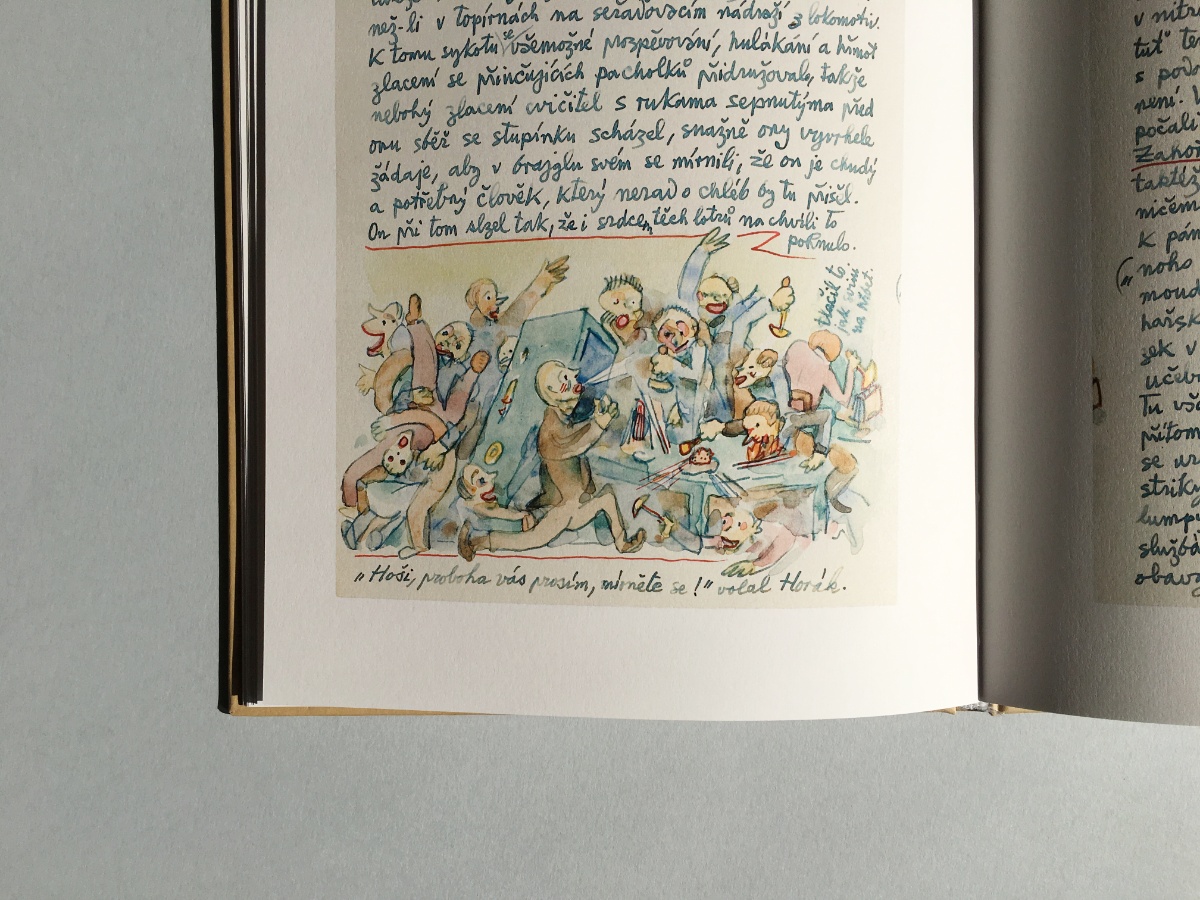 než-li v topírnách na seraďovacím nádraží z lokomotiv.
K tomu sykotu se všemožné prospěvování, hulákání a hřmot
zlacení se přiučujících pacholků přidružovalo, takže
nebohý zlacení cvičitel s rukama sepnutýma před
onu sběř se stupínku scházel, snažně ony vyvrhele
žádaje, aby v brajglu svém se mírnili, že on je chudý
a potřebný člověk, který nerad o chléb by tu přišel.
On při tom slzel tak, že i srdcem těch lotrů na chvíli to
pohnulo.
tlačil to
jak svini
na hřbet.
„Hoši, proboha vás prosím, mírněte se!" volal Horák.
v nitr
tuť te
s podo
není. V
počali
Zahoř
taktéž
ničem
K pán
(„noho
moud
hařsk
žek v
učeb
Tu vš
přítom
se ur
striky
lump
službo
obav